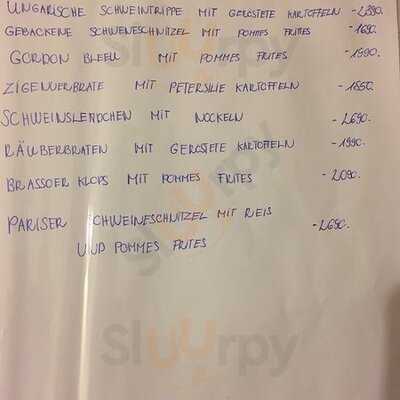 UNGARISCHE SCHWEINTRIPPE MIT GERÖSTETE KARTOFFELN -2390.
GEBACKENE SCHWEINESCHNITZEL MIT POMMES FRITES -1690.
GORDON BLEEU MIT POMMES FRITES -1990.
ZIGEUNERBRATE MIT PETERSILIE KARTOFFELN
SCHWEINSLENDCHEN MIT NOCKELN -2690.
RÄUBERBRATEN MIT GEROSTETE KARTOFFELN -1990.
BRASSOER KLOPS MIT POMMES FRITES -2090.
PARISER SCHWEINESCHNITZEL MIT REIS -2690.
UND POMMES FRITES
Sluurpy
Sluurpy
Sluurpy